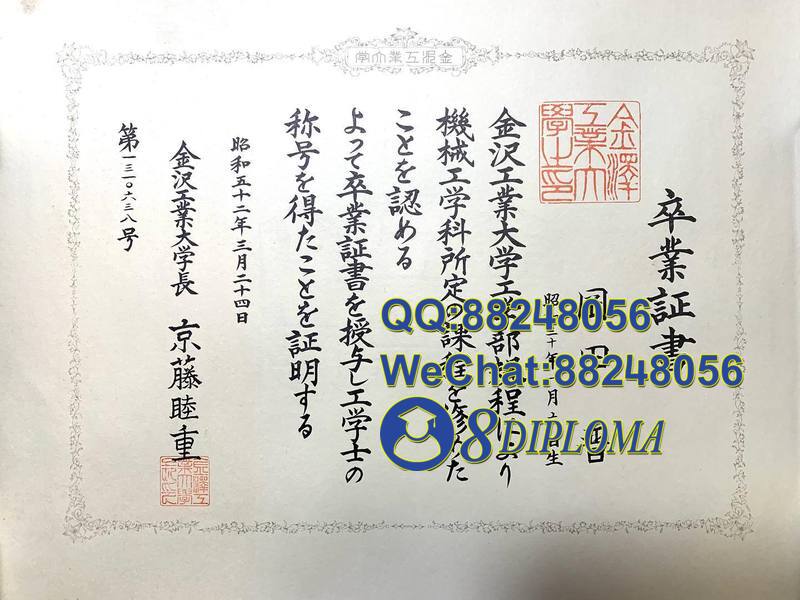 金沢工業大学
卒業証書
金澤工業大學之印
岡田
昭和三十年 月 日生
金沢工業大学工学部規程により
機械工学科所定の課程を修めた
ことを認める
よって卒業証書を授与し工学士の
称号を得たことを証明する
昭和五十二年三月二十四日
金沢工業大学長 京藤睦重
第一三〇六三八号
QQ:88248056
WeChat:88248056
8DIPLOMA